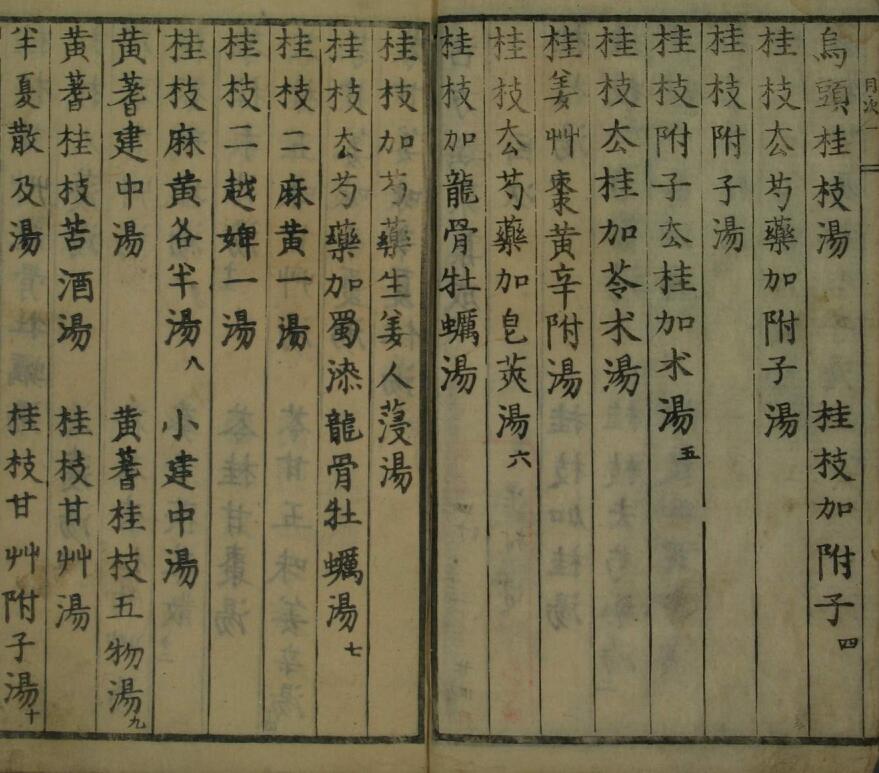 目次 一
烏頭桂枝湯 桂枝加附子四
桂枝厺芍藥加附子湯
桂枝附子湯
桂枝附子厺桂加朮湯五
桂枝厺桂加苓朮湯
桂姜艸棗黃辛附湯
桂枝厺芍藥加皂莢湯六
桂枝加龍骨牡蠣湯
桂枝加芍藥生姜人薓湯
桂枝厺芍藥加蜀漆龍骨牡蠣湯七
桂枝二麻黃一湯
桂枝二越婢一湯
桂枝麻黃各半湯八 小建中湯
黃蓍建中湯 黃蓍桂枝五物湯九
黃蓍桂枝苦酒湯 桂枝甘艸湯
半夏散及湯 桂枝甘艸附子湯十